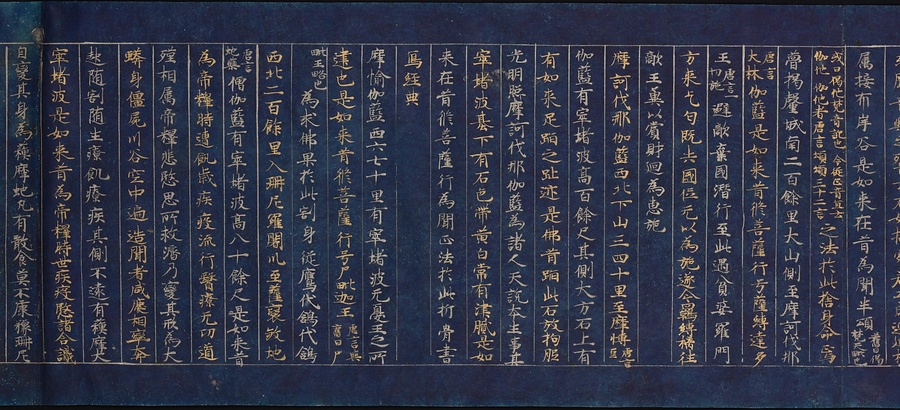 厲接布岸谷是如來在昔為聞半頌舊曰偈梵文略也
或曰偈他梵音訛也今從正音宜云伽他伽他者唐言頌頌三十二言之法於此捨身命焉
瞢揭釐城南二百餘里大山側至摩訶伐那
唐言大林伽藍是如來昔修菩薩行号薩縛達多
王唐言一切施避敵棄國潛行至此遇貧婆羅門
方來乞匄既失國位无以為施遂令羈縛擒往
敵王冀以賞財迴為惠施
摩訶伐那伽藍西北下山三四十里至摩愉唐言豆
伽藍有窣堵波高百餘尺其側大方石上有
有如來足蹈之趾迹是佛昔蹈此石放拘胝
光明照摩訶伐那伽藍為諸人天說本生事其
窣堵波基下有石色帶黃白常有津膩是如
來在昔修菩薩行為聞正法於此析骨書
寫經典
摩愉伽藍西六七十里有窣堵波无憂王之所
建也是如來昔修菩薩行号尸毗迦王唐言與舊曰尸
毗王略也為求佛果於此割身從鷹代鴿代鴿
西北二百餘里入珊尼羅闍川至薩裒殺地
唐言地藥僧伽藍有窣堵波高八十餘尺是如來昔
為帝釋時遭飢歲疾疫流行醫療无功道
殣相屬帝釋悲愍思所救濟乃變其形為大
蟒身僵屍川谷空中遍告聞者感慶相率奔
赴隨割隨生療飢療疾其側不遠有蘇摩大
窣堵波是如來昔為帝釋時世疾疫愍諸含識
自變其身為蘇摩地凡有噉食莫不康豫珊尼